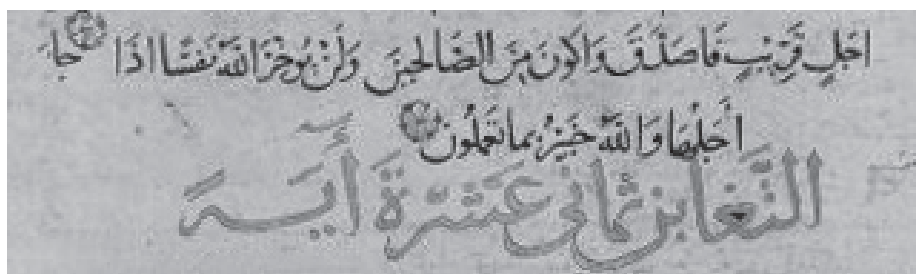 اَجَلٍ قَرِيْبٍ فَاَصَدَّقَ وَاَكُونَ مِنَ الصَّالِحِينَ وَلَنْ يُؤَخِّرَ اللّٰهُ نَفْسًا اِذَا جَا
اَجَلُهَا وَاللّٰهُ خَبِيْرٌ بِمَا تَعْمَلُونَ
التَّغَابُن ثَمَانِي عَشَرَةَ آيَـــة